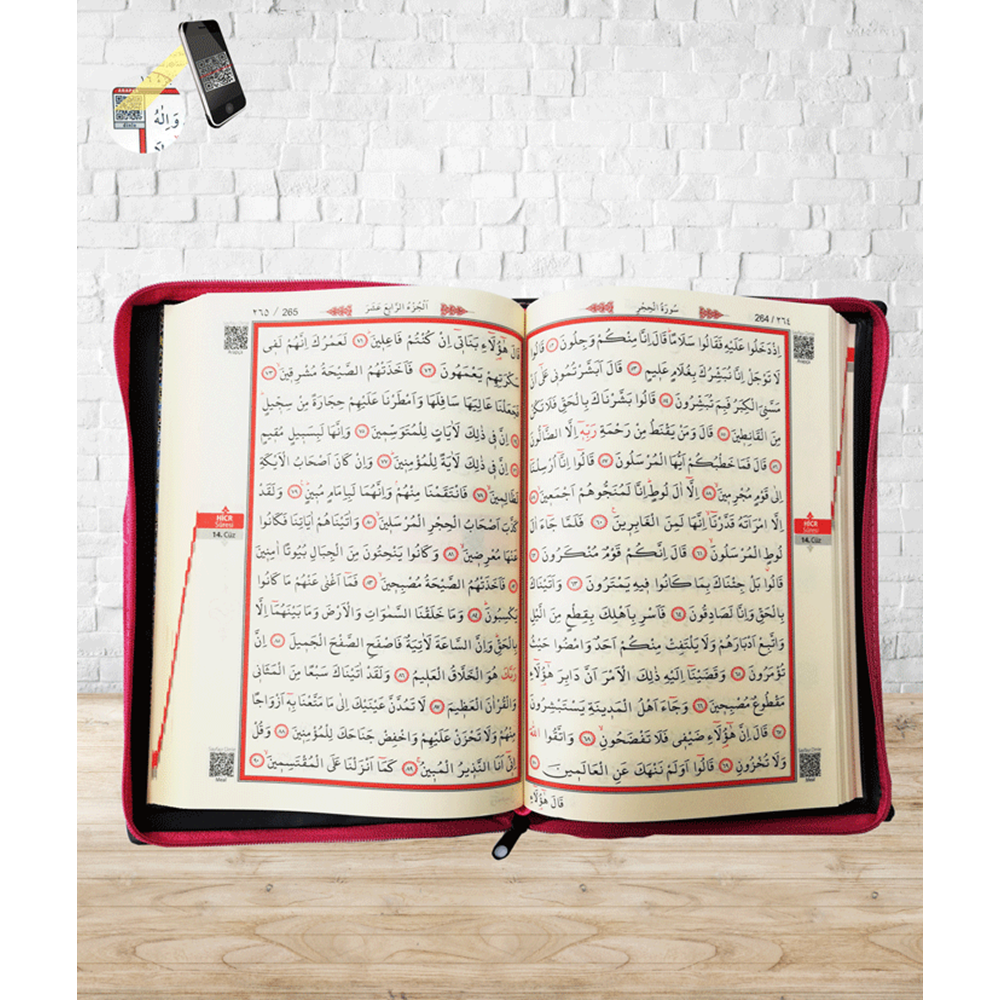 وَاِلٰهُ
سُورَةُ الْحِجْرِ 264 / ٢٦٤
اِذْ دَخَلُوا عَلَيْهِ فَقَالُوا سَلَامًا قَالَ اِنَّا مِنْكُمْ وَجِلُونَ ﴿٥٢﴾ قَالُوا
لَا تَوْجَلْ اِنَّا نُبَشِّرُكَ بِغُلَامٍ عَلِيمٍ ﴿٥٣﴾ قَالَ اَبَشَّرْتُمُونِي عَلٰٓى اَنْ
مَسَّنِيَ الْكِبَرُ فَبِمَ تُبَشِّرُونَ ﴿٥٤﴾ قَالُوا بَشَّرْنَاكَ بِالْحَقِّ فَلَا تَكُنْ
مِنَ الْقَانِطِينَ ﴿٥٥﴾ قَالَ وَمَنْ يَقْنَطُ مِنْ رَحْمَةِ رَبِّهٖٓ اِلَّا الضَّٓالُّونَ
﴿٥٦﴾ قَالَ فَمَا خَطْبُكُمْ اَيُّهَا الْمُرْسَلُونَ ﴿٥٧﴾ قَالُٓوا اِنَّٓا اُرْسِلْنَٓا
اِلٰى قَوْمٍ مُجْرِمِينَ ﴿٥٨﴾ اِلَّٓا اٰلَ لُوطٍ اِنَّا لَمُنَجُّوهُمْ اَجْمَعِينَ ﴿٥٩﴾
اِلَّا امْرَاَتَهُ قَدَّرْنَٓا اِنَّهَا لَمِنَ الْغَابِرِينَ ﴿٦٠﴾ فَلَمَّا جَٓاءَ اٰلَ
لُوطٍ الْمُرْسَلُونَ ﴿٦١﴾ قَالَ اِنَّكُمْ قَوْمٌ مُنْكَرُونَ ﴿٦٢﴾
قَالُوا بَلْ جِئْنَاكَ بِمَا كَانُوا فِيهِ يَمْتَرُونَ ﴿٦٣﴾ وَاَتَيْنَاكَ
بِالْحَقِّ وَاِنَّا لَصَادِقُونَ ﴿٦٤﴾ فَاَسْرِ بِاَهْلِكَ بِقِطْعٍ مِنَ الَّيْلِ
وَاتَّبِعْ اَدْبَارَهُمْ وَلَا يَلْتَفِتْ مِنْكُمْ اَحَدٌ وَامْضُوا حَيْثُ
تُؤْمَرُونَ ﴿٦٥﴾ وَقَضَيْنَٓا اِلَيْهِ ذٰلِكَ الْاَمْرَ اَنَّ دَابِرَ هٰٓؤُ۬لَٓاءِ
مَقْطُوعٌ مُصْبِحِينَ ﴿٦٦﴾ وَجَٓاءَ اَهْلُ الْمَدِينَةِ يَسْتَبْشِرُونَ
﴿٦٧﴾ قَالَ اِنَّ هٰٓؤُ۬لَٓاءِ ضَيْفِي فَلَا تَفْضَحُونِ ﴿٦٨﴾ وَاتَّقُوا اللّٰهَ
وَلَا تُخْزُونِ ﴿٦٩﴾ قَالُٓوا اَوَلَمْ نَنْهَكَ عَنِ الْعَالَمِينَ ﴿٧٠﴾
قَالَ هٰٓؤُ۬لَٓاءِ
HİCR
Sûresi
14. Cüz
٢٦٥ / 265 اَلْجُزْءُ الرَّابِعَ عَشَرَ
قَالَ هٰٓؤُ۬لَٓاءِ بَنَاتِٓي اِنْ كُنْتُمْ فَاعِلِينَ ﴿٧١﴾ لَعَمْرُكَ اِنَّهُمْ لَفِي
سَكْرَتِهِمْ يَعْمَهُونَ ﴿٧٢﴾ فَاَخَذَتْهُمُ الصَّيْحَةُ مُشْرِقِينَ ﴿٧٣﴾
فَجَعَلْنَا عَالِيَهَا سَافِلَهَا وَاَمْطَرْنَا عَلَيْهِمْ حِجَارَةً مِنْ سِجِّيلٍ
﴿٧٤﴾ اِنَّ فِي ذٰلِكَ لَاٰيَاتٍ لِلْمُتَوَسِّمِينَ ﴿٧٥﴾ وَاِنَّهَا لَبِسَبِيلٍ مُقِيمٍ
﴿٧٦﴾ اِنَّ فِي ذٰلِكَ لَاٰيَةً لِلْمُؤْمِنِينَ ﴿٧٧﴾ وَاِنْ كَانَ اَصْحَابُ الْاَيْكَةِ
لَظَالِمِينَ ﴿٧٨﴾ فَانْتَقَمْنَا مِنْهُمْ وَاِنَّهُمَا لَبِاِمَامٍ مُبِينٍ ﴿٧٩﴾ وَلَقَدْ
كَذَّبَ اَصْحَابُ الْحِجْرِ الْمُرْسَلِينَ ﴿٨٠﴾ وَاٰتَيْنَاهُمْ اٰيَاتِنَا فَكَانُوا
عَنْهَا مُعْرِضِينَ ﴿٨١﴾ وَكَانُوا يَنْحِتُونَ مِنَ الْجِبَالِ بُيُوتًا اٰمِنِينَ
﴿٨٢﴾ فَاَخَذَتْهُمُ الصَّيْحَةُ مُصْبِحِينَ ﴿٨٣﴾ فَمَٓا اَغْنٰى عَنْهُمْ مَا كَانُوا
يَكْسِبُونَ ﴿٨٤﴾ وَمَا خَلَقْنَا السَّمٰوَاتِ وَالْاَرْضَ وَمَا بَيْنَهُمَٓا اِلَّا
بِالْحَقِّ وَاِنَّ السَّاعَةَ لَاٰتِيَةٌ فَاصْفَحِ الصَّفْحَ الْجَمِيلَ ﴿٨٥﴾ اِنَّ
رَبَّكَ هُوَ الْخَلَّاقُ الْعَلِيمُ ﴿٨٦﴾ وَلَقَدْ اٰتَيْنَاكَ سَبْعًا مِنَ الْمَثَانِي
وَالْقُرْاٰنَ الْعَظِيمَ ﴿٨٧﴾ لَا تَمُدَّنَّ عَيْنَيْكَ اِلٰى مَا مَتَّعْنَا بِهٖٓ اَزْوَاجًا
مِنْهُمْ وَلَا تَحْزَنْ عَلَيْهِمْ وَاخْفِضْ جَنَاحَكَ لِلْمُؤْمِنِينَ ﴿٨٨﴾ وَقُلْ
اِنِّٓي اَنَا النَّذِيرُ الْمُبِينُ ﴿٨٩﴾ كَمَٓا اَنْزَلْنَا عَلَى الْمُقْتَسِمِينَ ﴿٩٠﴾
HİCR
Sûresi
14. Cüz